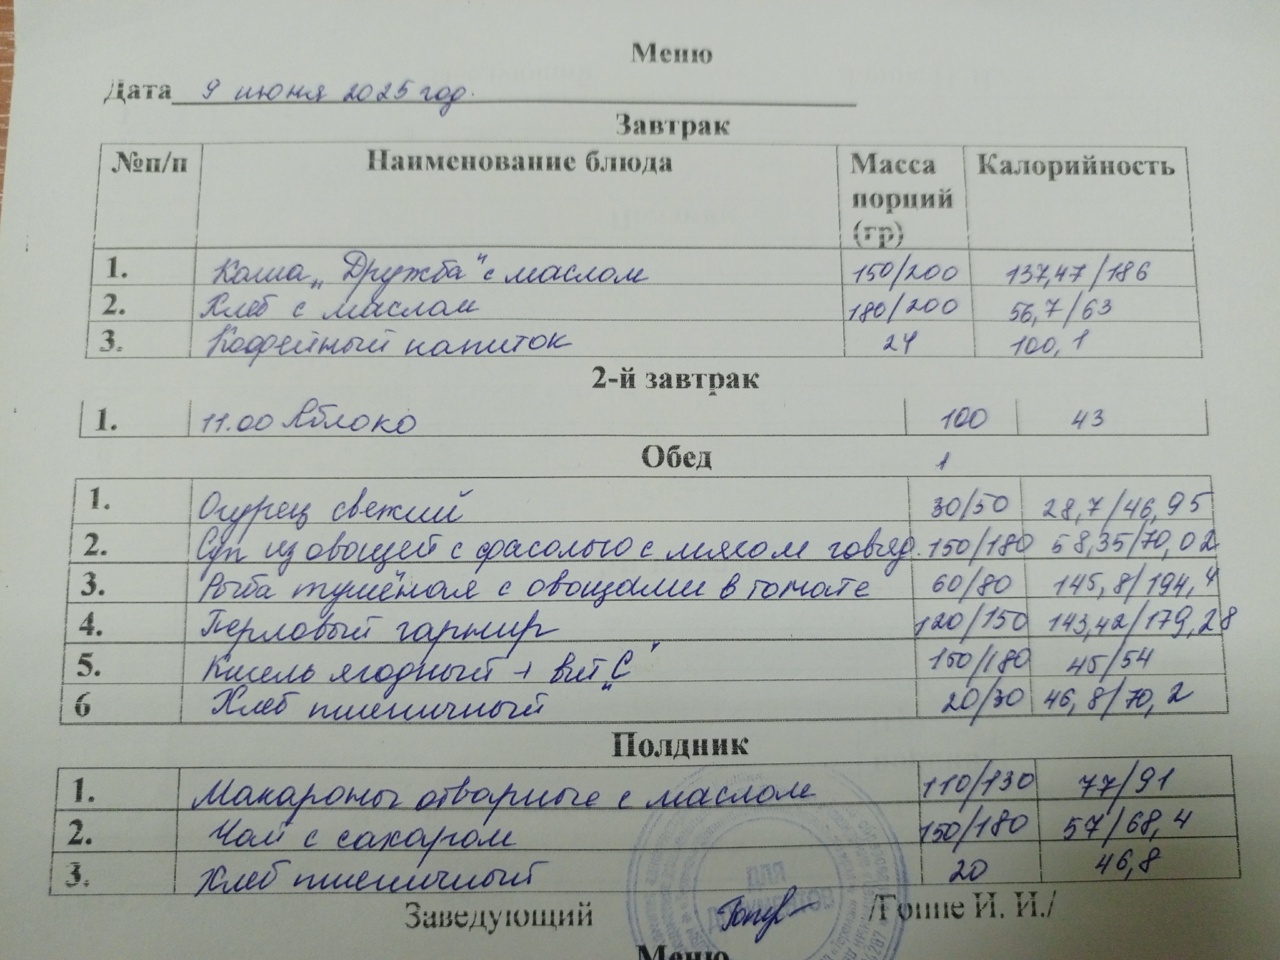 Меню
Дата 9 июня 2025 год.
Завтрак
№п/п Наименование блюда Масса порций (гр) Калорийность
1. Каша „Дружба" с маслом 150/200 137,47/186
2. Хлеб с маслом 180/200 56,7/63
3. Кофейный напиток 24 100,1
2-й завтрак
1. 11.00 Яблоко 100 43
Обед 1
1. Огурец свежий 30/50 28,7/46,95
2. Суп из овощей с фасолью с мясом говяд. 150/180 58,35/70,02
3. Рыба тушёная с овощами в томате 60/80 145,8/194,4
4. Перловый гарнир 120/150 143,42/179,28
5. Кисель ягодный + вит „С" 150/180 45/54
6 Хлеб пшеничный 20/30 46,8/70,2
Полдник
1. Макароны отварные с маслом 110/130 77/91
2. Чай с сахаром 150/180 57/68,4
3. Хлеб пшеничный 20 46,8
Заведующий /Гоппе И. И./
ДЛЯ
ДОКУМЕНТОВ
Меню